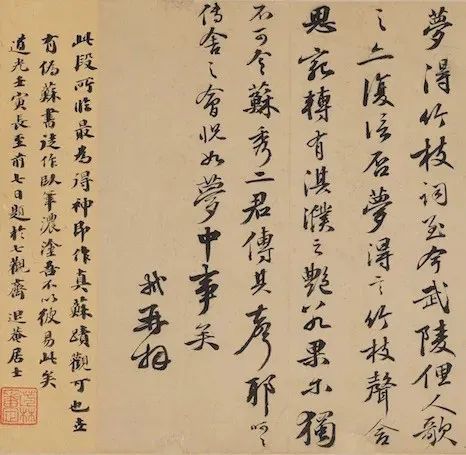 夢得竹枝詞至今武陵俚人歌
之亦復信否夢得之竹枝聲含
思宛轉有淇濮之艷若果尔獨
不可令蘇秀二君傳其聲耶呵〻
傳舍之會怳如夢中事矣
軾再拜
此段所臨最為得神即作真蘇蹟觀可也世
有偽蘇書徒作臥筆濃塗吾不以彼易此矣
道光壬寅長至前七日題於七觀齋退菴居士